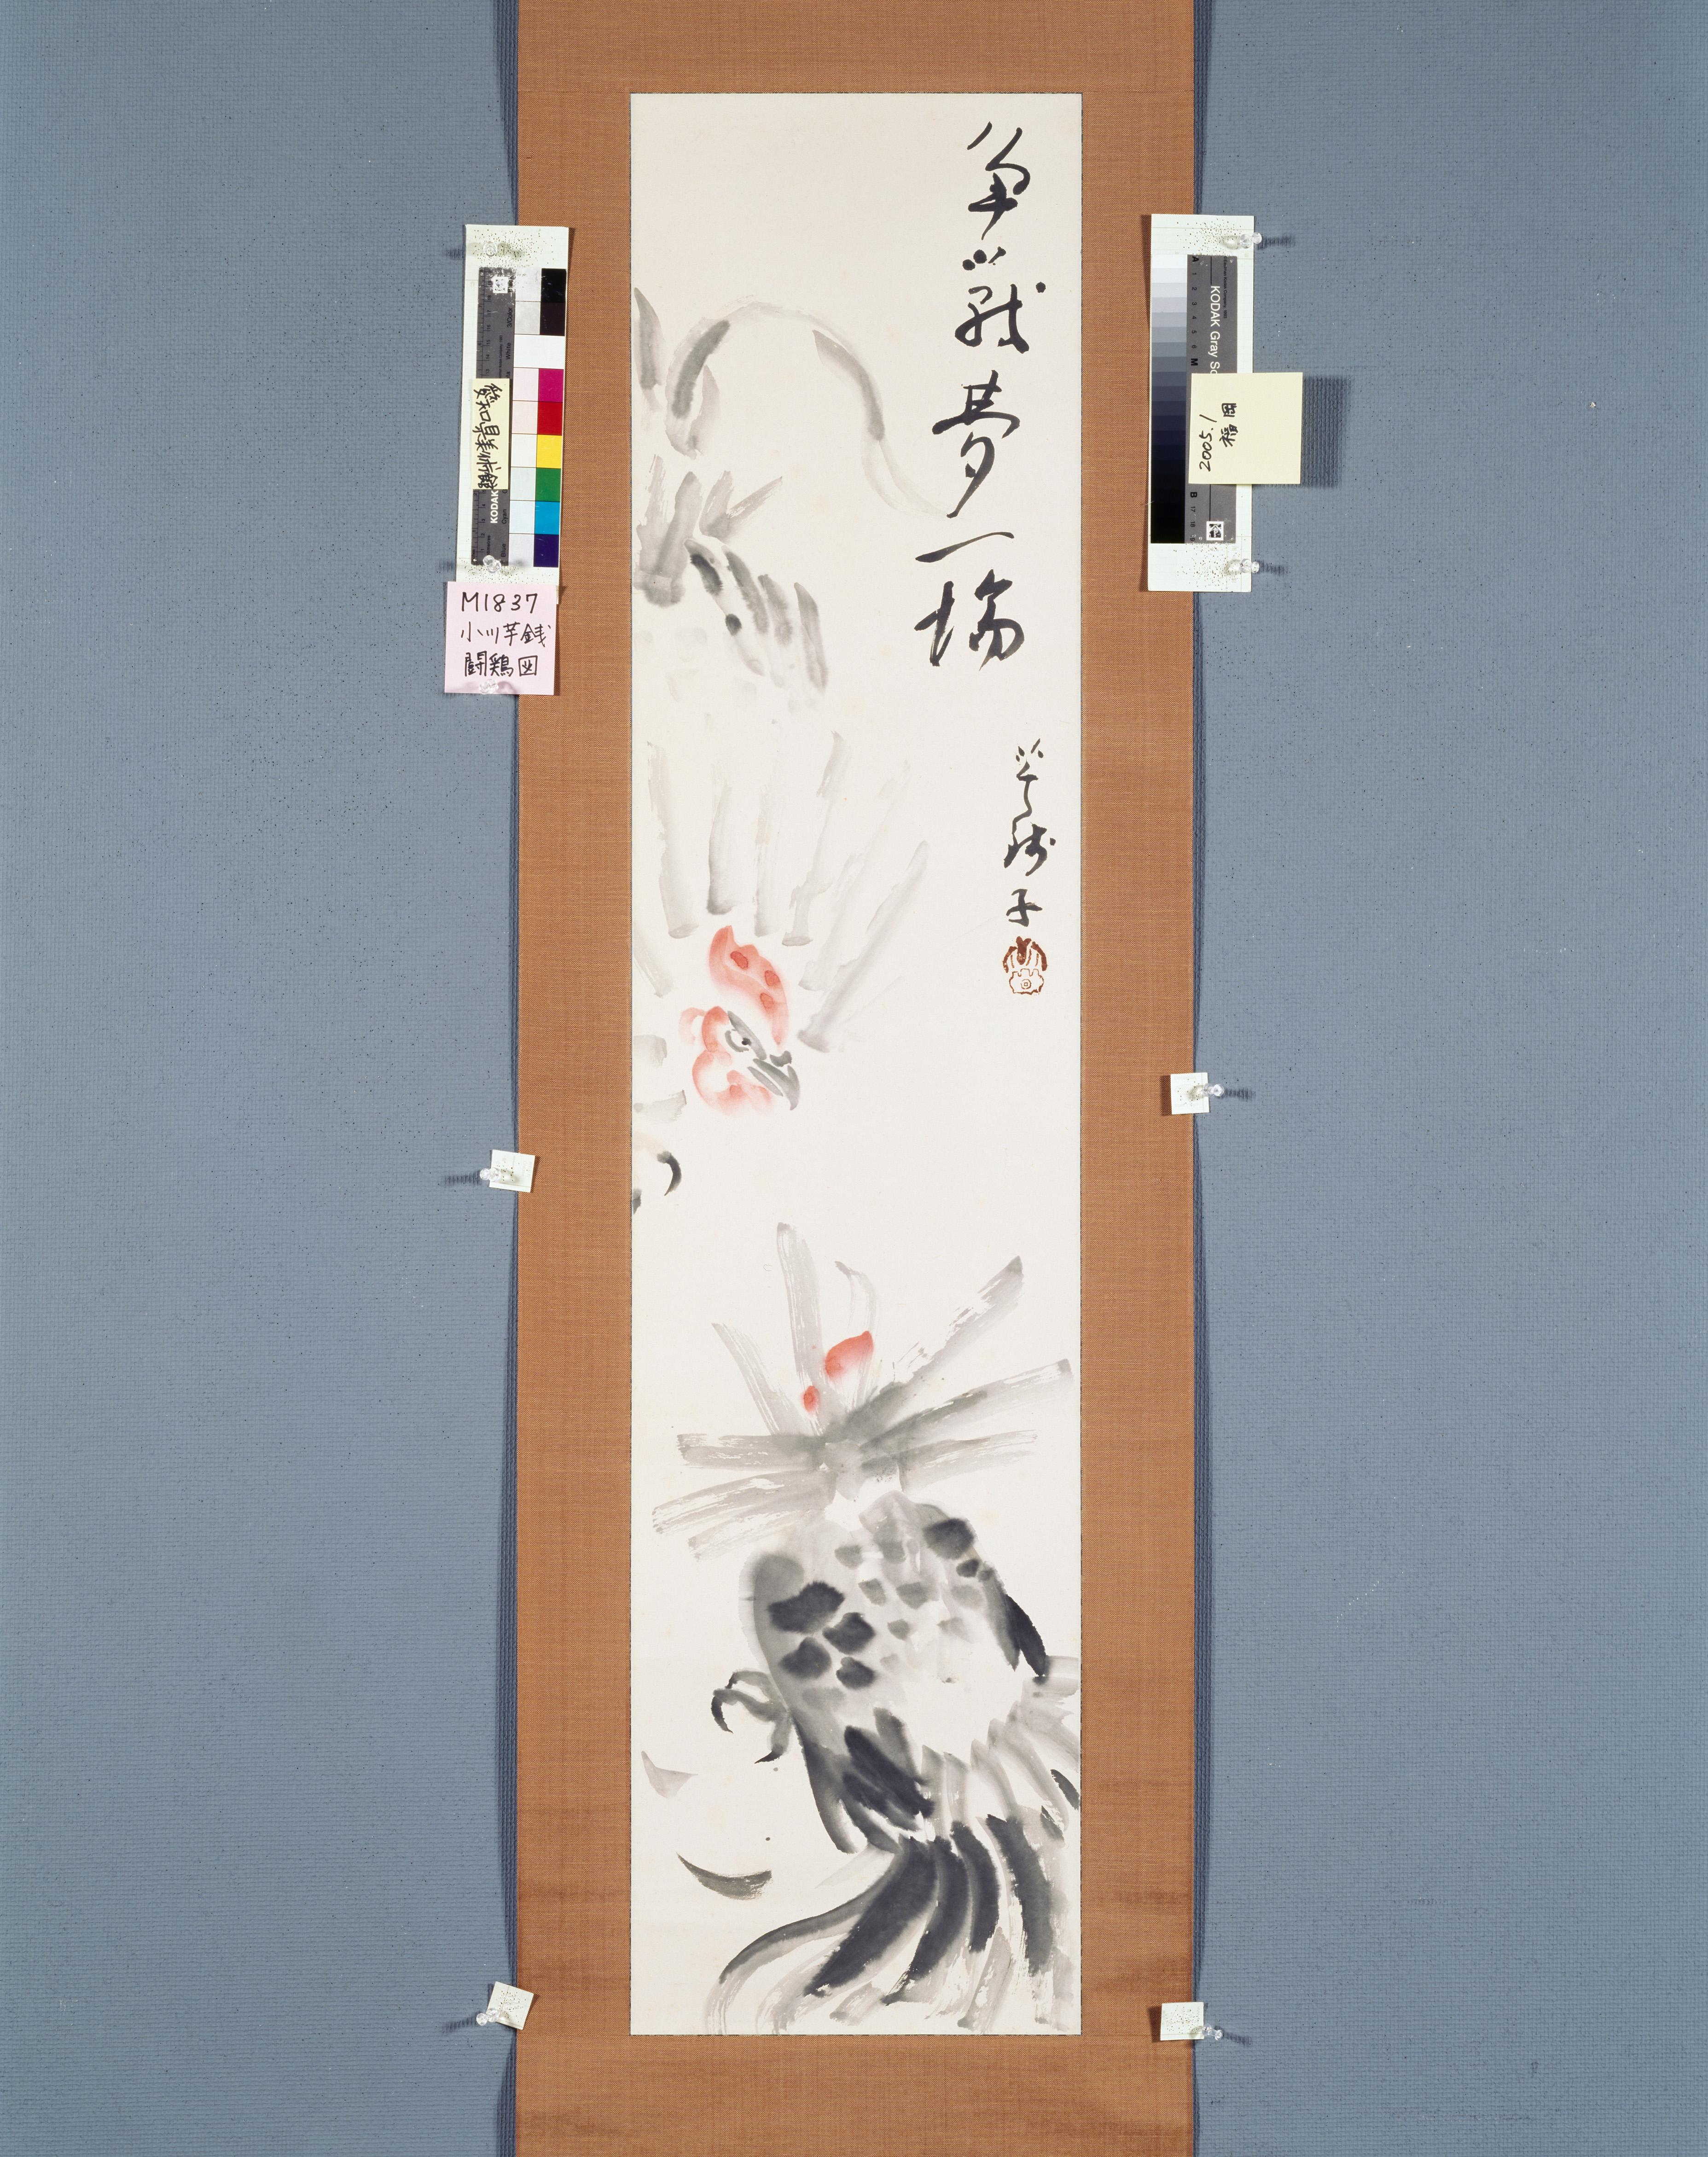 争戦夢一場
芋銭子
M1837
小川芋銭
闘鶏図
愛知県美術館
KODAK
KODAK Gray Sc
A
M
B
2005.1
福岡